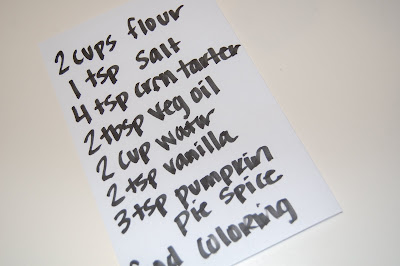 2 cups flour
1 tsp salt
4 tsp crm tarter
2 tbsp veg oil
2 cup water
2 tsp vanilla
3 tsp pumpkin
pie spice
coloring